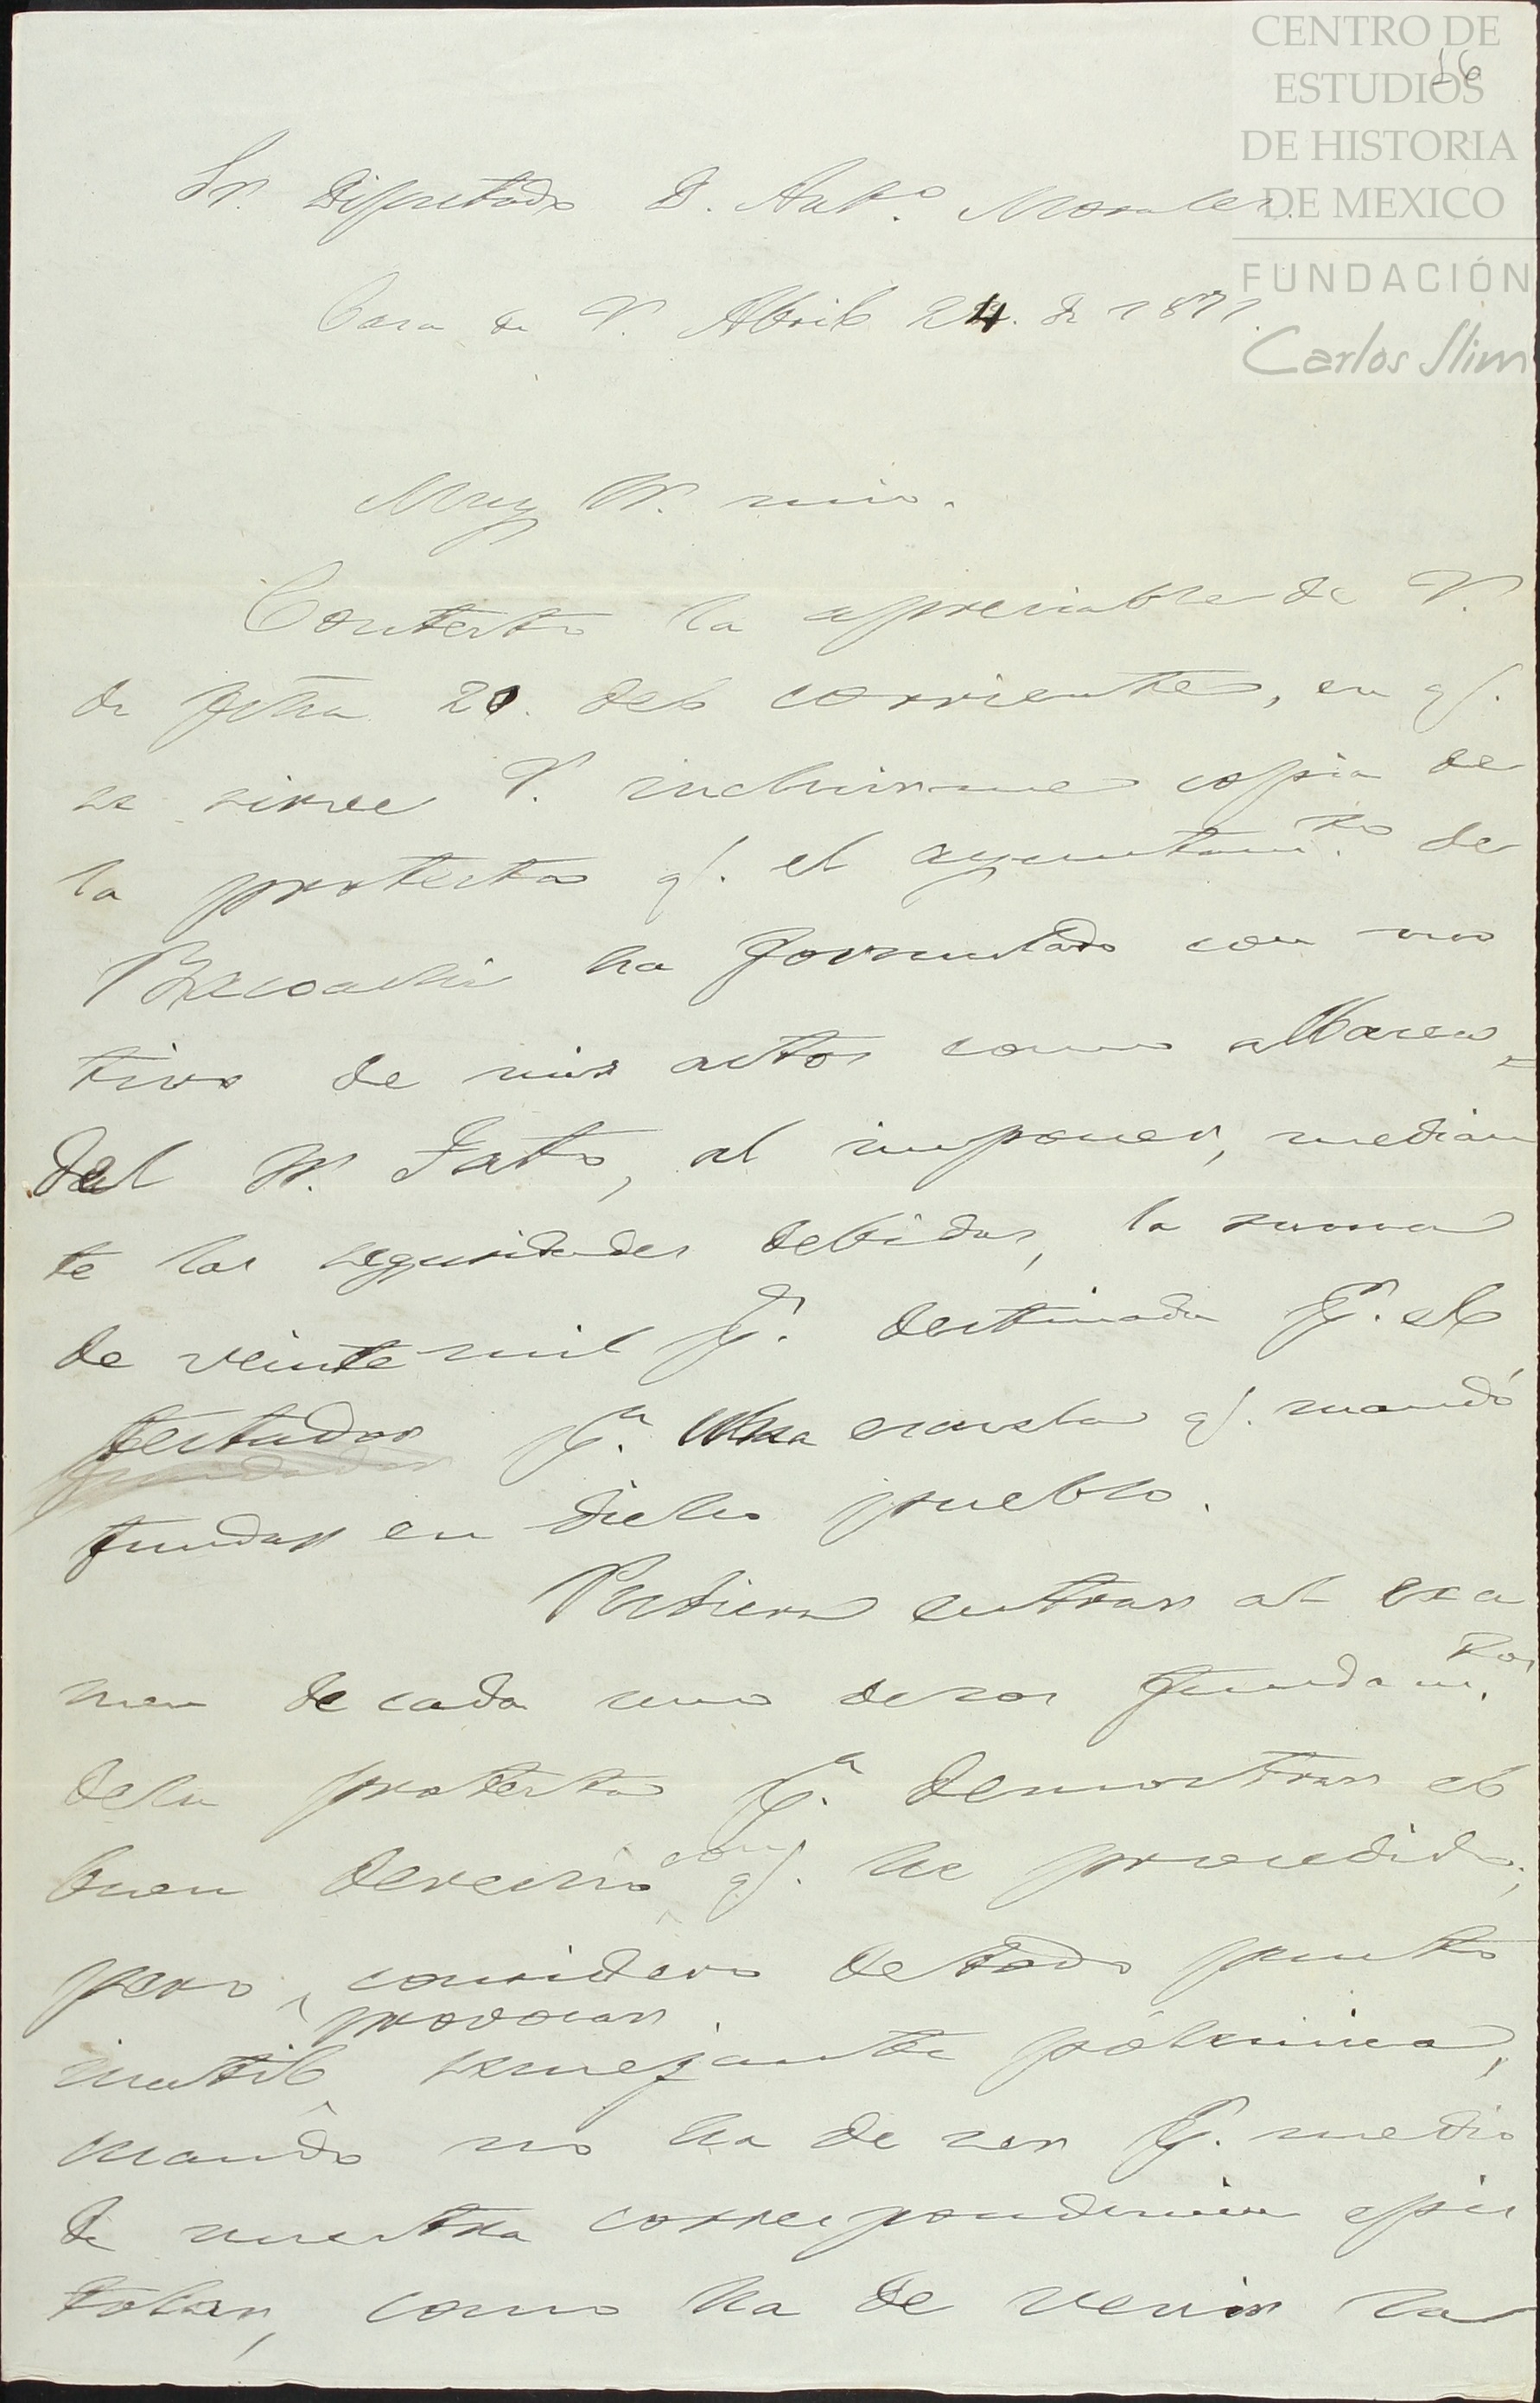 CENTRO DE
ESTUDIOS
DE HISTORIA
DE MEXICO
FUNDACIÓN
Carlos Slim
16
Sr. Diputado D. Antº. Morales.
Casa de V. Abril 24. de 1871.
Muy Sr. mio.
Contesto la apreciable de V.
de fcha 20. del corriente, en q.
se sirve V. incluirme copia de
la protesta q. el ayuntam.to de
Bacoachi ha formulado con mo
tivo de mis actos como albacea
del Sr. Gato, al imponer, median
te las seguridades debidas, la suma
de veinte mil p.s destinada p.r el
testador p.a una escuela q. mandó
fundar en dicho pueblo.
Pudiera entrar al exa
men de cada uno de los fundam.tos
de la protesta p.a demostrar el
buen derecho con q. he procedido;
pero considero de todo punto
inutil provocar semejante polémica,
cuando no ha de ser p.r medio
de nuestra correspondencia epis
tolar, como ha de venir la